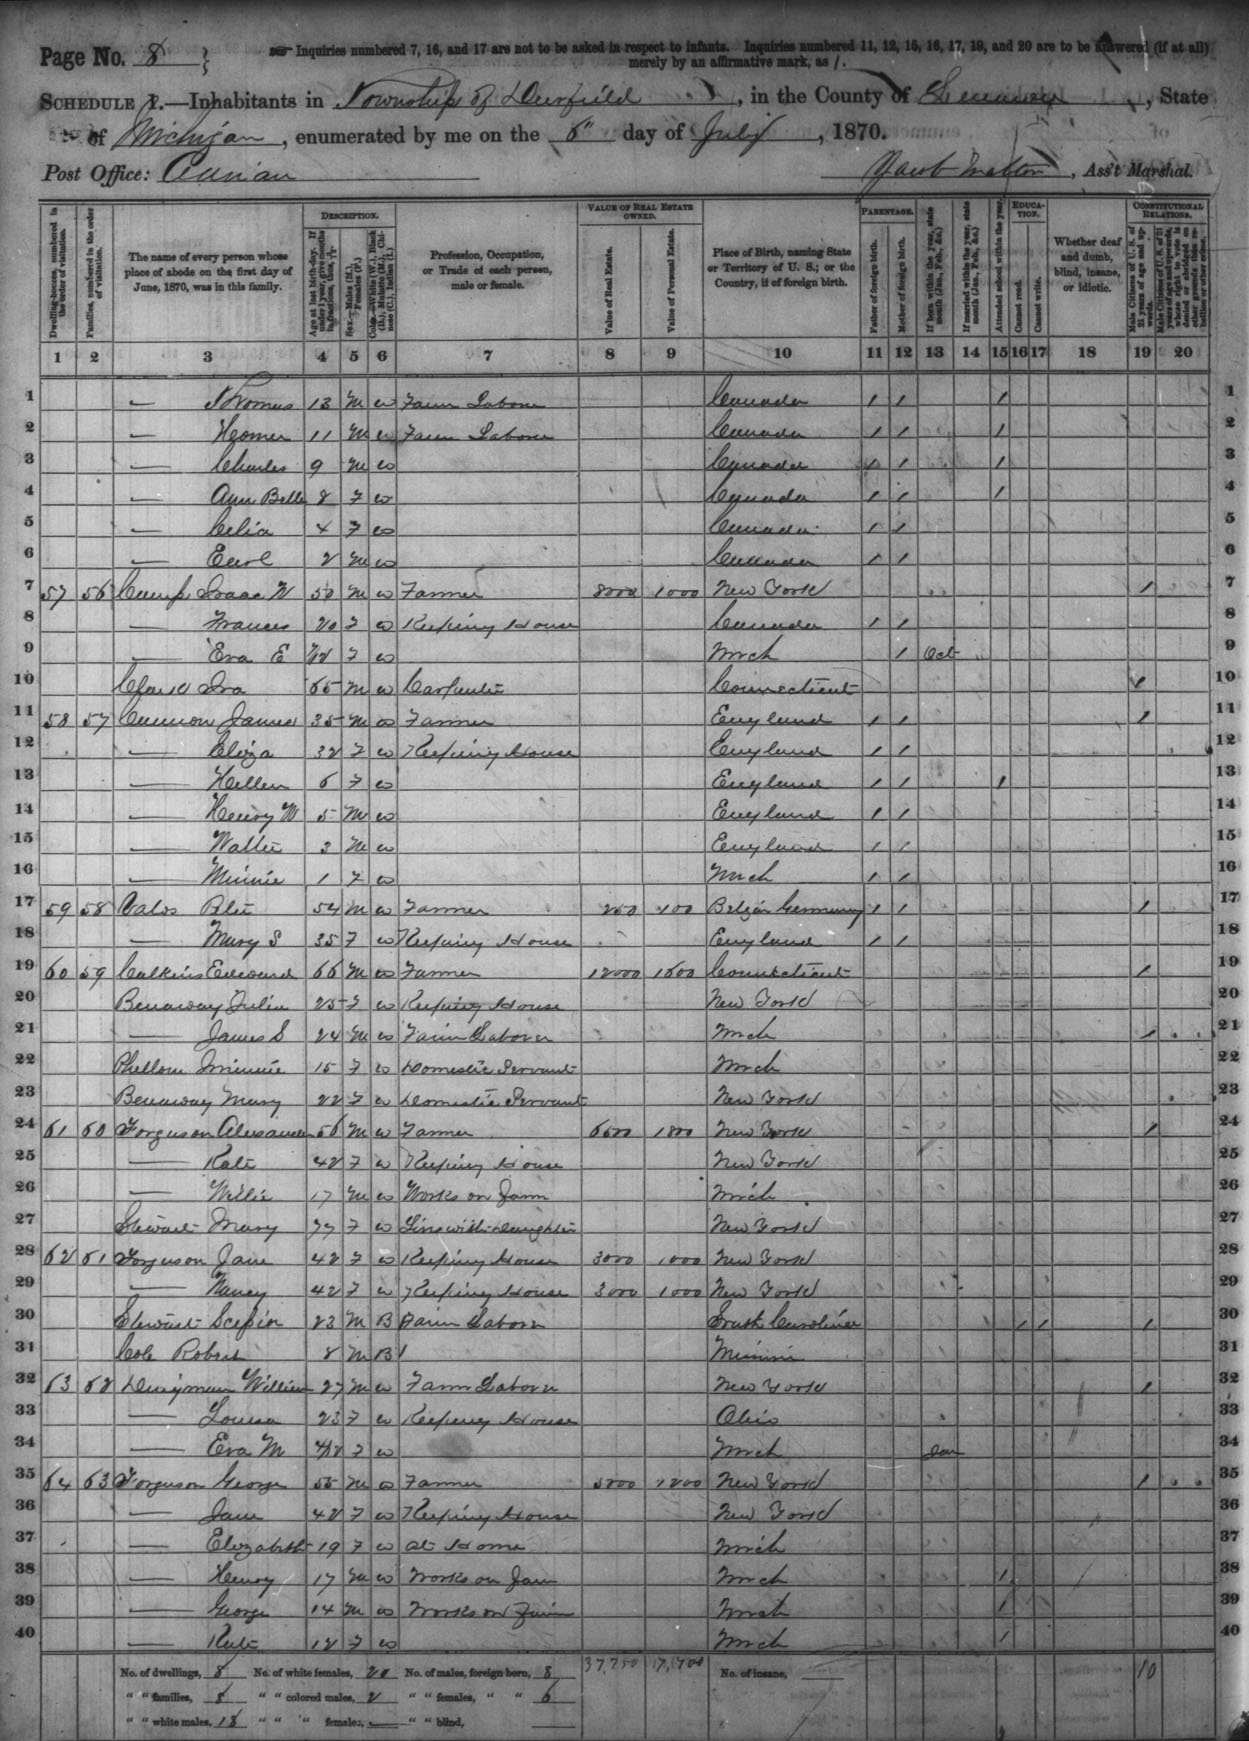 Page No. 8 } Inquiries numbered 7, 16, and 17 are not to be asked in respect to infants. Inquiries numbered 11, 12, 15, 16, 17, 19, and 20 are to be answered (if at all)
merely by an affirmative mark, as /.
SCHEDULE 1.—Inhabitants in Township of Deerfield, in the County of Lenawee, State
of Michigan, enumerated by me on the 6" day of July, 1870.
Post Office: Jacob, Ass't Marshal.
Dwelling-houses, numbered in the order of visitation.
Families, numbered in the order of visitation.
The name of every person whose place of abode on the first day of June, 1870, was in this family.
DESCRIPTION.
Age at last birth-day. If under 1 year, give months in fractions, thus, 3/12
Sex.—Males (M.), Females (F.)
Color.—White (W.), Black (B.), Mulatto (M.), Chinese (C.), Indian (I.)
Profession, Occupation, or Trade of each person, male or female.
VALUE OF REAL ESTATE OWNED.
Value of Real Estate.
Value of Personal Estate.
Place of Birth, naming State or Territory of U. S.; or the Country, if of foreign birth.
PARENTAGE.
Father of foreign birth.
Mother of foreign birth.
If born within the year, state month (Jan., Feb., &c.)
If married within the year, state month (Jan., Feb., &c.)
EDUCATION.
Attended school within the year.
Cannot read.
Cannot write.
Whether deaf and dumb, blind, insane, or idiotic.
CONSTITUTIONAL RELATIONS.
Male Citizens of U. S. of 21 years of age and upwards.
Male Citizens of U. S. of 21 years of age and upwards, whose right to vote is denied or abridged on other grounds than rebellion or other crime.
1 2 3 4 5 6 7 8 9 10 11 12 13 14 15 16 17 18 19 20
1 — Thomas 13 M W Farm Labore Canada / / / 1
2 — Homer 11 M W Farm Laborer Canada / / / 2
3 — Charles 9 M W Canada / / / 3
4 — Ann Belle 8 F W Canada / / / 4
5 — Celia 4 F W Canada / / 5
6 — Earl 2 M W Canada / / 6
7 57 56 Camp Isaac W 50 M W Farmer 8000 1000 New York / 7
8 — Frances 20 F W Keeping House Canada / / 8
9 — Eva E F W Mich / Oct 9
10 Ira 65 M W Carpenter Connecticut / 10
11 58 57 James 35 M W Farmer England / / / 11
12 — Eliza 32 F W Keeping House England / / 12
13 — Hellen 6 F W England / / / 13
14 — Henry W 5 M W England / / 14
15 — Walter 3 M W England / / 15
16 — Minnie 1 F W Mich / / 16
17 59 58 54 M W Farmer 100 Germany / / / 17
18 — Mary S 35 F W Keeping House England / / 18
19 60 59 Calkins Edward 66 M W Farmer 12000 1600 Connecticut / 19
20 Benaway Julia 25 F W Keeping House New York 20
21 — James S 24 M W Farm Laborer Mich / 21
22 Minnie 15 F W Domestic Servant Mich 22
23 Benaway Mary 22 F W Domestic Servant New York 23
24 61 60 Forguson Alexander 56 M W Farmer 6500 1800 New York / 24
25 — Kate 42 F W Keeping House New York 25
26 — Willie 17 M W Works on Farm Mich 26
27 Stewart Mary 77 F W Live with Daughter New York 27
28 62 61 Forguson Jane 42 F W Keeping House 3000 1000 New York 28
29 — Nancy 42 F W Keeping House 3000 1000 New York 29
30 Stewart 23 M B Farm Laborer South Carolina / / / 30
31 Cole Robert 8 M B 31
32 63 62 William 27 M W Farm Laborer New York / 32
33 — Louisa 23 F W Keeping House Ohio 33
34 — Eva M F W Mich Jan 34
35 64 63 Forguson George 55 M W Farmer 5000 1200 New York / 35
36 — Jane 42 F W Keeping House New York 36
37 — Elizabeth 19 F W At Home Mich 37
38 — Henry 17 M W Works on Farm Mich / 38
39 — George 14 M W Works on Farm Mich / 39
40 — Kate 12 F W Mich / 40
No. of dwellings, 8 No. of white females, 20 No. of males, foreign born, 8 37,750 17,700 No. of insane, 10
" " families, 8 " " colored males, 2 " " females, " " 6
" " white males, 18 " " " females, — " " blind,